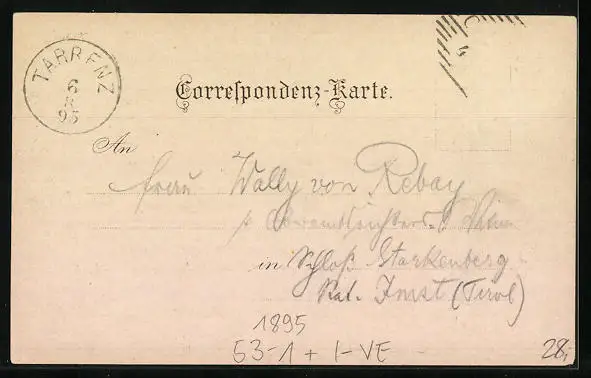 TARRENZ
6
8
95
Correspondenz-Karte.
An
Frau Wally von Rebay
in Schloß Starkenberg
Imst (Tirol)
1895
53-1 + 1-VE
28,-